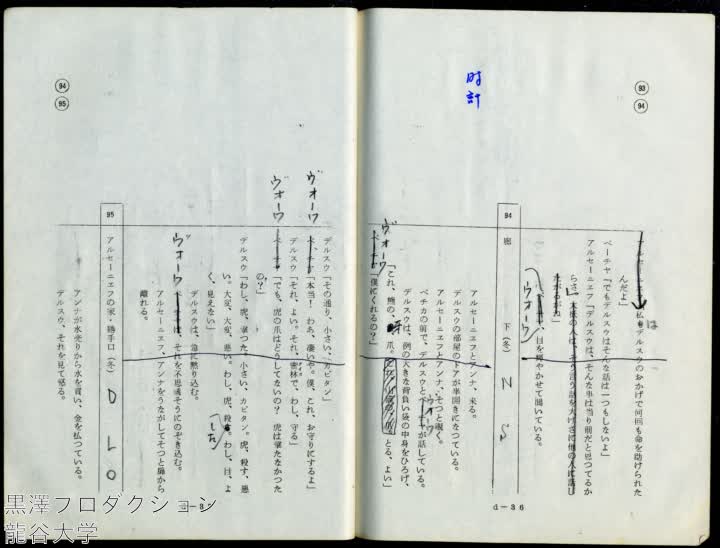 93
94
時計
は
私もデルスウのおかげで何回も命を助けられた
んだよ」
ペーチャ「でもデルスウはそんな話は一つもしないよ」
アルセーニエフ「デルスウは、そんな事は当り前だと思つてるか
らさ。本当の人は、そう言う話を大げさに他の人に話し
たがるがね」
ヴォーワ
、目を輝やかせて聞いている。
94 廊下(冬) N S
アルセーニエフとアンナ、来る。
デルスウの部屋のドアが半開きになつている。
アルセーニエフとアンナ、そつと覗く。
ヴォーワ
ペチカの前で、デルスウとペーチャが話している。
デルスウは、例の大きな背負い袋の中身をひろげ、
「これ、熊の、爪、とる、よい」
ヴォーワ
ペーチャ「僕にくれるの?」
d-36
94
95
デルスウ「その通り、小さい、カピタン」
ヴォーワ
ペーチャ「本当! わあ、凄いや。僕、これ、お守りにするよ」
デルスウ「それ、よい。それ、密林で、わし、守る」
ヴォーワ
ペーチャ「でも、虎の爪はどうしてないの? 虎は撃たなかつた
の?」
デルスウ「わし、虎、撃つた。小さい、カピタン。虎、殺す、悪
い。大変、大変、悪い。わし、虎、殺した。わし、目、よ
く、見えない」
デルスウは、急に黙り込む。
ヴォーワ
、それを不思議そうにのぞき込む。
アルセーニエフ、アンナをうながしてそつと扉から
離れる。
95 アルセーニエフの家・勝手口(冬) D L O
アンナが水売りから水を買い、金を払つている。
デルスウ、それを見て怒る。
黒澤プロダクション
龍谷大学